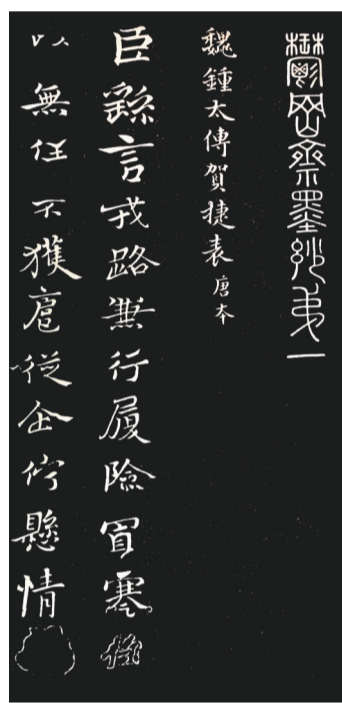 鬱岡齋墨妙弟一
魏鍾太傅賀捷表 唐本
臣繇言戎路兼行履險冒寒
以無任不獲扈從企佇懸情